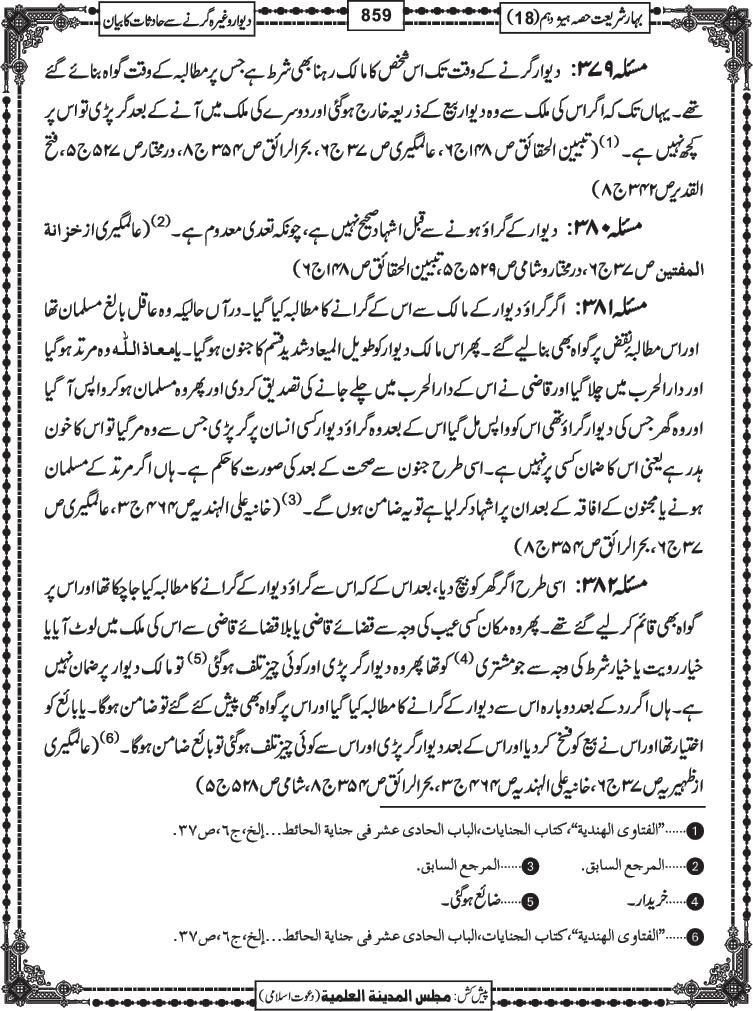 بہارشریعت حصہ ہیژدہم (18)
859
دیوار وغیرہ گرنے سے حادثات کا بیان
مسئلہ ۳۷۹: دیوار گرنے کے وقت تک اس شخص کا مالک رہنا بھی شرط ہے جس پر مطالبہ کے وقت گواہ بنائے گئے
تھے۔ یہاں تک کہ اگر اس کی ملک سے وہ دیوار بیع کے ذریعہ خارج ہوگئی اور دوسرے کی ملک میں آنے کے بعد گر پڑی تو اس پر
کچھ نہیں ہے۔ (1) (تبیین الحقائق ص ۱۴۸ ج ۶، عالمگیری ص ۳۷ ج ۶، بحر الرائق ص ۳۵۴ ج ۸، درمختار ص ۵۲۷ ج ۵، فتح
القدیر ص ۳۴۲ ج ۸)
مسئلہ ۳۸۰: دیوار کے گراؤ ہونے سے قبل اشہاد صحیح نہیں ہے، چونکہ تعدی معدوم ہے۔ (2) (عالمگیری از خزانة
المفتین ص ۳۷ ج ۶، درمختار و شامی ص ۵۲۹ ج ۵، تبیین الحقائق ص ۱۴۸ ج ۶)
مسئلہ ۳۸۱: اگر گراؤ دیوار کے مالک سے اس کے گرانے کا مطالبہ کیا گیا۔ درآں حالیکہ وہ عاقل بالغ مسلمان تھا
اور اس مطالبۂ نقض پر گواہ بھی بنا لیے گئے۔ پھر اس مالک دیوار کو طویل المیعاد شدید قسم کا جنون ہوگیا۔ یا معاذ اللہ وہ مرتد ہوگیا
اور دارالحرب میں چلا گیا اور قاضی نے اس کے دارالحرب میں چلے جانے کی تصدیق کردی اور پھر وہ مسلمان ہوکر واپس آ گیا
اور وہ گھر جس کی دیوار گراؤ تھی اس کو واپس مل گیا اس کے بعد وہ گراؤ دیوار کسی انسان پر گر پڑی جس سے وہ مر گیا تو اس کا خون
ہدر ہے یعنی اس کا ضمان کسی پر نہیں ہے۔ اسی طرح جنون سے صحت کے بعد کی صورت کا حکم ہے۔ ہاں اگر مرتد کے مسلمان
ہونے یا مجنون کے افاقہ کے بعد ان پر اشہاد کرلیا ہے تو یہ ضامن ہوں گے۔ (3) (خانیہ علی الہندیہ ص ۴۶۴ ج ۳، عالمگیری ص
۳۷ ج ۶، بحر الرائق ص ۳۵۴ ج ۸)
مسئلہ ۳۸۲: اسی طرح اگر گھر کو بیچ دیا، بعد اس کے کہ اس سے گراؤ دیوار کے گرانے کا مطالبہ کیا جاچکا تھا اور اس پر
گواہ بھی قائم کر لیے گئے تھے۔ پھر وہ مکان کسی عیب کی وجہ سے قضائے قاضی یا بلا قضائے قاضی سے اس کی ملک میں لوٹ آیا یا
خیار رویت یا خیار شرط کی وجہ سے جو مشتری (4) کو تھا پھر وہ دیوار گر پڑی اور کوئی چیز تلف ہوگئی (5) تو مالک دیوار پر ضمان نہیں
ہے۔ ہاں اگر رد کے بعد دوبارہ اس سے دیوار کے گرانے کا مطالبہ کیا گیا اور اس پر گواہ بھی پیش کئے گئے تو ضامن ہوگا۔ یا بائع کو
اختیار تھا اور اس نے بیع کو فسخ کر دیا اور اس کے بعد دیوار گر پڑی اور اس سے کوئی چیز تلف ہوگئی تو بائع ضامن ہوگا۔ (6) (عالمگیری
از ظہیریہ ص ۳۷ ج ۶، خانیہ علی الہندیہ ص ۴۶۴ ج ۳، بحر الرائق ص ۳۵۴ ج ۸، شامی ص ۵۲۸ ج ۵)
1......"الفتاوی الهندیة"، کتاب الجنایات، الباب الحادی عشر فی جنایة الحائط...إلخ، ج٦، ص٣٧.
2......المرجع السابق. 3......المرجع السابق.
4......خریدار۔ 5......ضائع ہوگئی۔
6......"الفتاوی الهندیة"، کتاب الجنایات، الباب الحادی عشر فی جنایة الحائط...إلخ، ج٦، ص٣٧.
پیش کش: مجلس المدینة العلمیة (دعوت اسلامی)